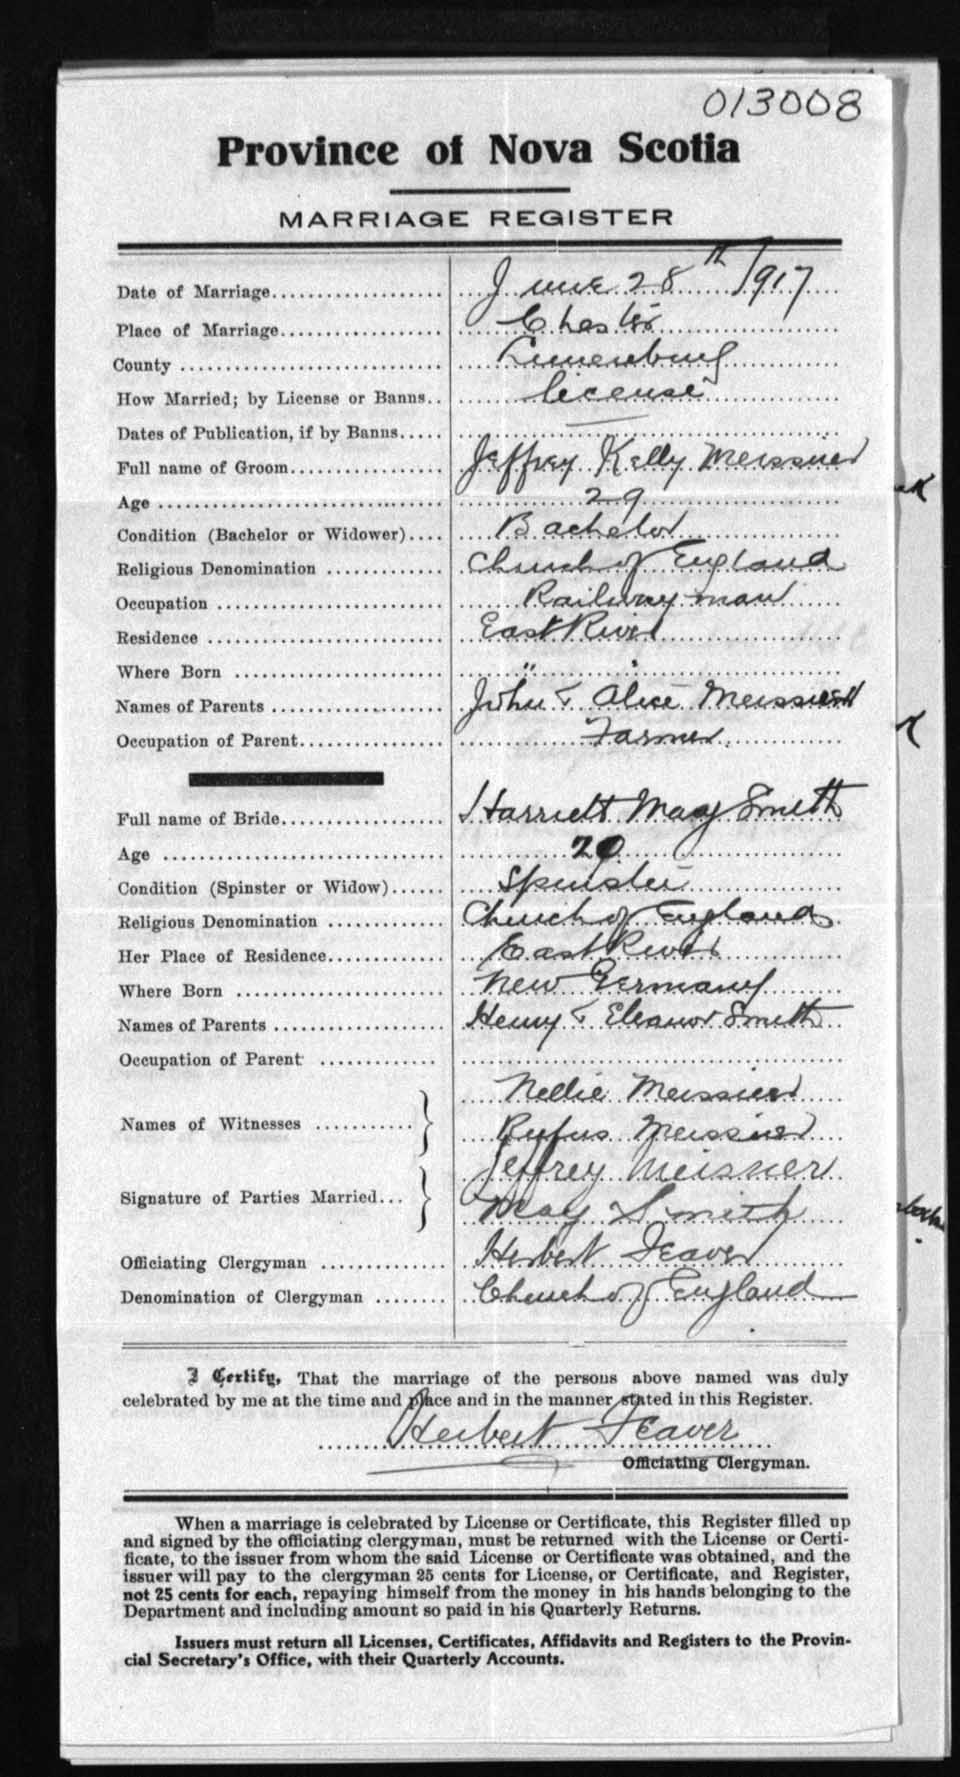 013008
Province of Nova Scotia
MARRIAGE REGISTER
Date of Marriage.................... June 28th 1917
Place of Marriage.................... Chester
County .................... Lunenburg
How Married; by License or Banns.. license
Dates of Publication, if by Banns..... —
Full name of Groom.................... Jeffrey Kelly Meissner
Age .................... 29
Condition (Bachelor or Widower).... Bachelor
Religious Denomination .................... Church of England
Occupation .................... Railway man
Residence .................... East River
Where Born .................... " "
Names of Parents .................... John & Alice Meissner
Occupation of Parent.................... Farmer.
Full name of Bride.................... Harriett May Smith
Age .................... 20
Condition (Spinster or Widow)...... Spinster
Religious Denomination .................... Church of England
Her Place of Residence.................... East River
Where Born .................... New Germany
Names of Parents .................... Henry & Eleanor Smith
Occupation of Parent ....................
Nellie Meissner
Names of Witnesses ...........
Rufus Meissner
Jeffrey Meisner
Signature of Parties Married...
May Smith
Officiating Clergyman .................... Herbert Feaver
Denomination of Clergyman ........ Church of England
I Certify, That the marriage of the persons above named was duly
celebrated by me at the time and place and in the manner stated in this Register.
Herbert Feaver
Officiating Clergyman.
When a marriage is celebrated by License or Certificate, this Register filled up
and signed by the officiating clergyman, must be returned with the License or Certi-
ficate, to the issuer from whom the said License or Certificate was obtained, and the
issuer will pay to the clergyman 25 cents for License, or Certificate, and Register,
not 25 cents for each, repaying himself from the money in his hands belonging to the
Department and including amount so paid in his Quarterly Returns.
Issuers must return all Licenses, Certificates, Affidavits and Registers to the Provin-
cial Secretary's Office, with their Quarterly Accounts.